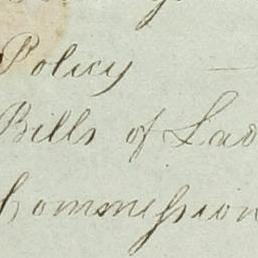 Policy
Bills of Lad
Commession